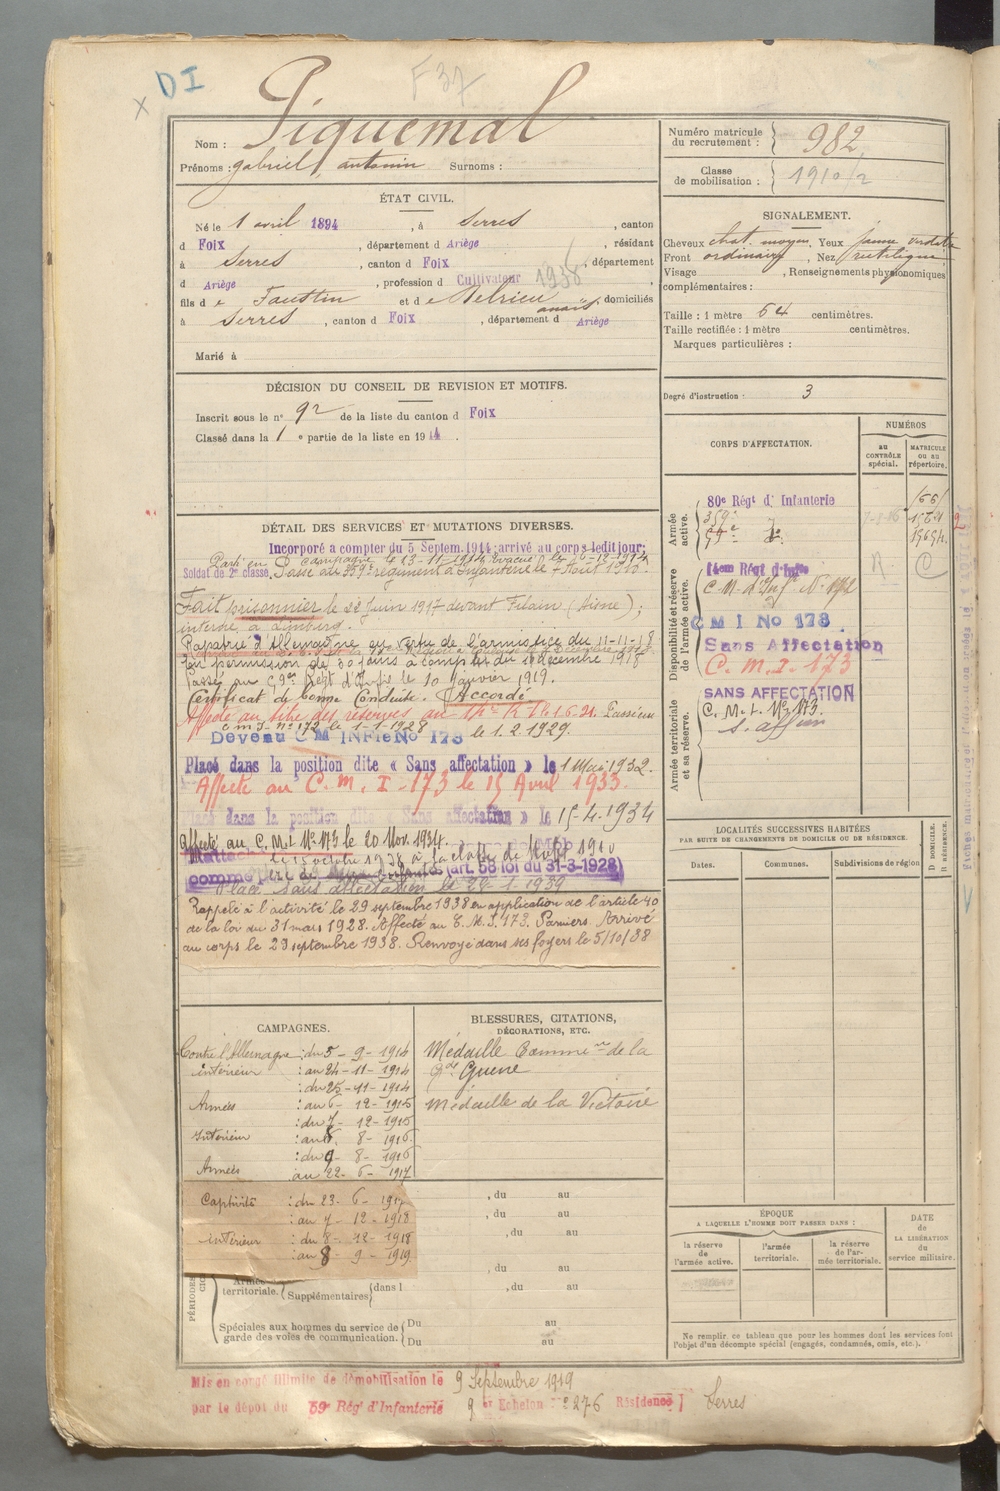 DI
F 37
Nom : Piquemal
Prénoms : gabriel, antonin Surnoms :
Numéro matricule du recrutement : 982
Classe de mobilisation : 1910/2
ÉTAT CIVIL.
Né le 1 avril 1894, à Serres, canton
d Foix, département d Ariège, résidant
à Serres, canton d Foix, département
d Ariège, profession d Cultivateur 1936,
fils d e Faustin et d e Delrieu anaïs, domiciliés
à Serres, canton d Foix, département d Ariège
Marié à
SIGNALEMENT.
Cheveux chat. moyen, Yeux jaune verdatre
Front ordinaire, Nez rectiligne
Visage , Renseignements physionomiques
complémentaires :
Taille : 1 mètre 64 centimètres.
Taille rectifiée : 1 mètre centimètres.
Marques particulières :
Degré d'instruction : 3
DÉCISION DU CONSEIL DE REVISION ET MOTIFS.
Inscrit sous le n° 92 de la liste du canton d Foix
Classé dans la 1 e partie de la liste en 1914.
DÉTAIL DES SERVICES ET MUTATIONS DIVERSES.
Incorporé a compter du 5 Septem. 1914; arrivé au corps ledit jour;
Parti en campagne le 13-11-1914 Evacué le 6-12-1914
Soldat de 2e classe. Passé au 359e régiment d'Infanterie le 7 Août
Fait prisonnier le 22 juin 1917 devant Filain (Aisne);
interné à Limburg.
Rapatrié d'Allemagne en vertu de l'armistice du 11-11-18
En permission de 30 jours à compter du décembre 1918
Passé au 59e Régt d'Infie le 10 Janvier 1919.
Certificat de bonne Conduite. Accordé
Affecté au titre des réserves au Passé au
C M I n° 172 le 1-1-1928
Devenu C M INFie No 173 le 1.2.1929.
Placé dans la position dite « Sans affectation » le 1 Mai 1932.
Affecté au C. M. I - 173 le 15 Avril 1933.
Placé dans la position dite « Sans affectation » le 15-4-1934
Affecté au C. M. I No 173 le 20 Nov. 1934.
le 15 octobre 1938 à la classe de Mob 1910
(art. 58 loi du 31-3-1928)
Placé sans affectation le 24-1-1939
Rappelé à l'activité le 29 septembre 1938 en application de l'article 40
de la loi du 31 mars 1928. Affecté au C. M. I. 173. Pamiers. Arrivé
au corps le 29 septembre 1938. Renvoyé dans ses foyers le 5/10/38
CORPS D'AFFECTATION.
NUMÉROS
AU CONTRÔLE spécial.
MATRICULE ou au répertoire.
Armée active.
80e Régt d'Infanterie
359e
59e
Disponibilité et réserve de l'armée active.
14em Régt d'Infie
C. M. d'Infie N° 172
C M I No 173
Sans Affectation
C. M. I - 173
Armée territoriale et sa réserve.
SANS AFFECTATION
C. M. I. No 173.
S. affon
LOCALITÉS SUCCESSIVES HABITÉES
PAR SUITE DE CHANGEMENTS DE DOMICILE OU DE RÉSIDENCE.
Dates.
Communes.
Subdivisions de région
D DOMICILE.
R RÉSIDENCE.
CAMPAGNES.
Contre l'Allemagne : du 5 - 9 - 1914
intérieur : au 24 - 11 - 1914
: du 25 - 11 - 1914
Armées : au 6 - 12 - 1915
: du 7 - 12 - 1915
Intérieur : au 8 - 8 - 1916
: du 9 - 8 - 1916
Armées au 22 - 6 - 1917
Captivité : du 23 - 6 - 1917
: au 7 - 12 - 1918
intérieur : du 8 - 12 - 1918
: au 8 - 9 - 1919
BLESSURES, CITATIONS, DÉCORATIONS, ETC.
Médaille Commve de la
Gde Guerre
Médaille de la Victoire
, du au
, du au
, du au
, du au
Armée territoriale. Supplémentaires dans l , du au
Spéciales aux hommes du service de garde des voies de communication.
Du au
Du au
ÉPOQUE
A LAQUELLE L'HOMME DOIT PASSER DANS :
la réserve de l'armée active.
l'armée territoriale.
la réserve de l'armée territoriale.
DATE de LA LIBÉRATION du service militaire.
Ne remplir ce tableau que pour les hommes dont les services font
l'objet d'un décompte spécial (engagés, condamnés, omis, etc.).
Mis en congé illimité de démobilisation le 9 Septembre 1919
par le dépôt du 59e Rég' d'Infanterie 9 er Echelon 2276 Résidence Serres